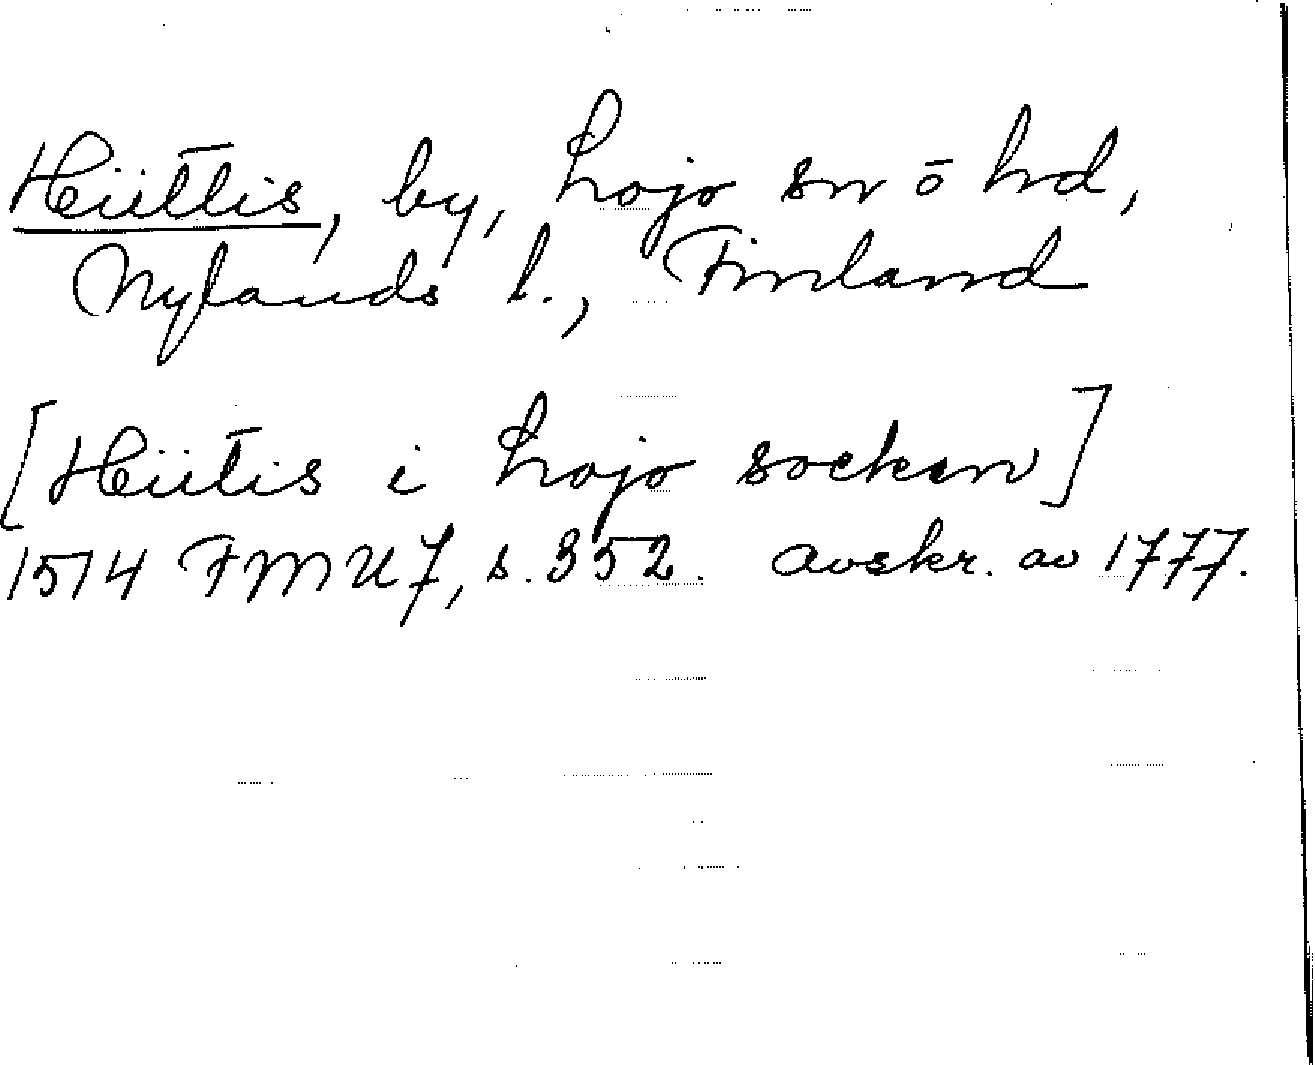 Hiittis, by, Lojo sn ō hd,
Nylands l., Finland
[Hiitis i Lojo socken]
1514 FMU 7, s. 352. avskr. av 1777.